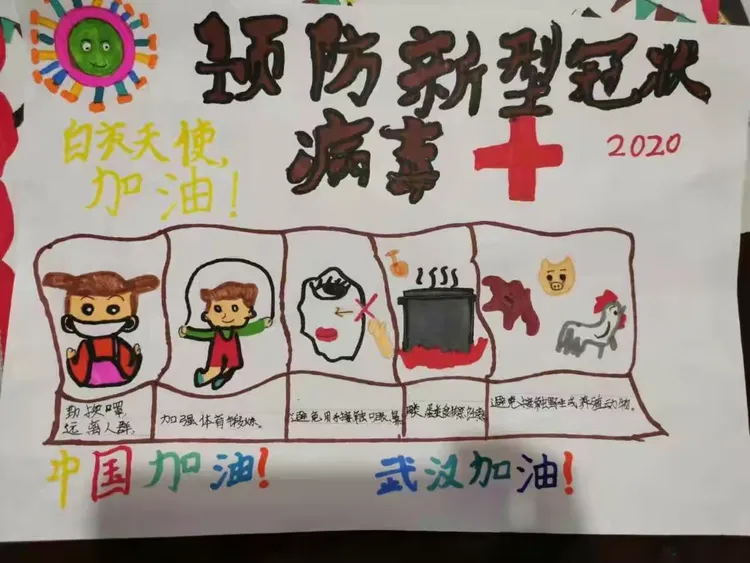 预防新型冠状
病毒
2020
白衣天使,
加油!
勤换罩,
远离人群,
加强体育锻炼。
避免用手接触口眼鼻
避免接触野生或养殖动物。
中国加油!
武汉加油!